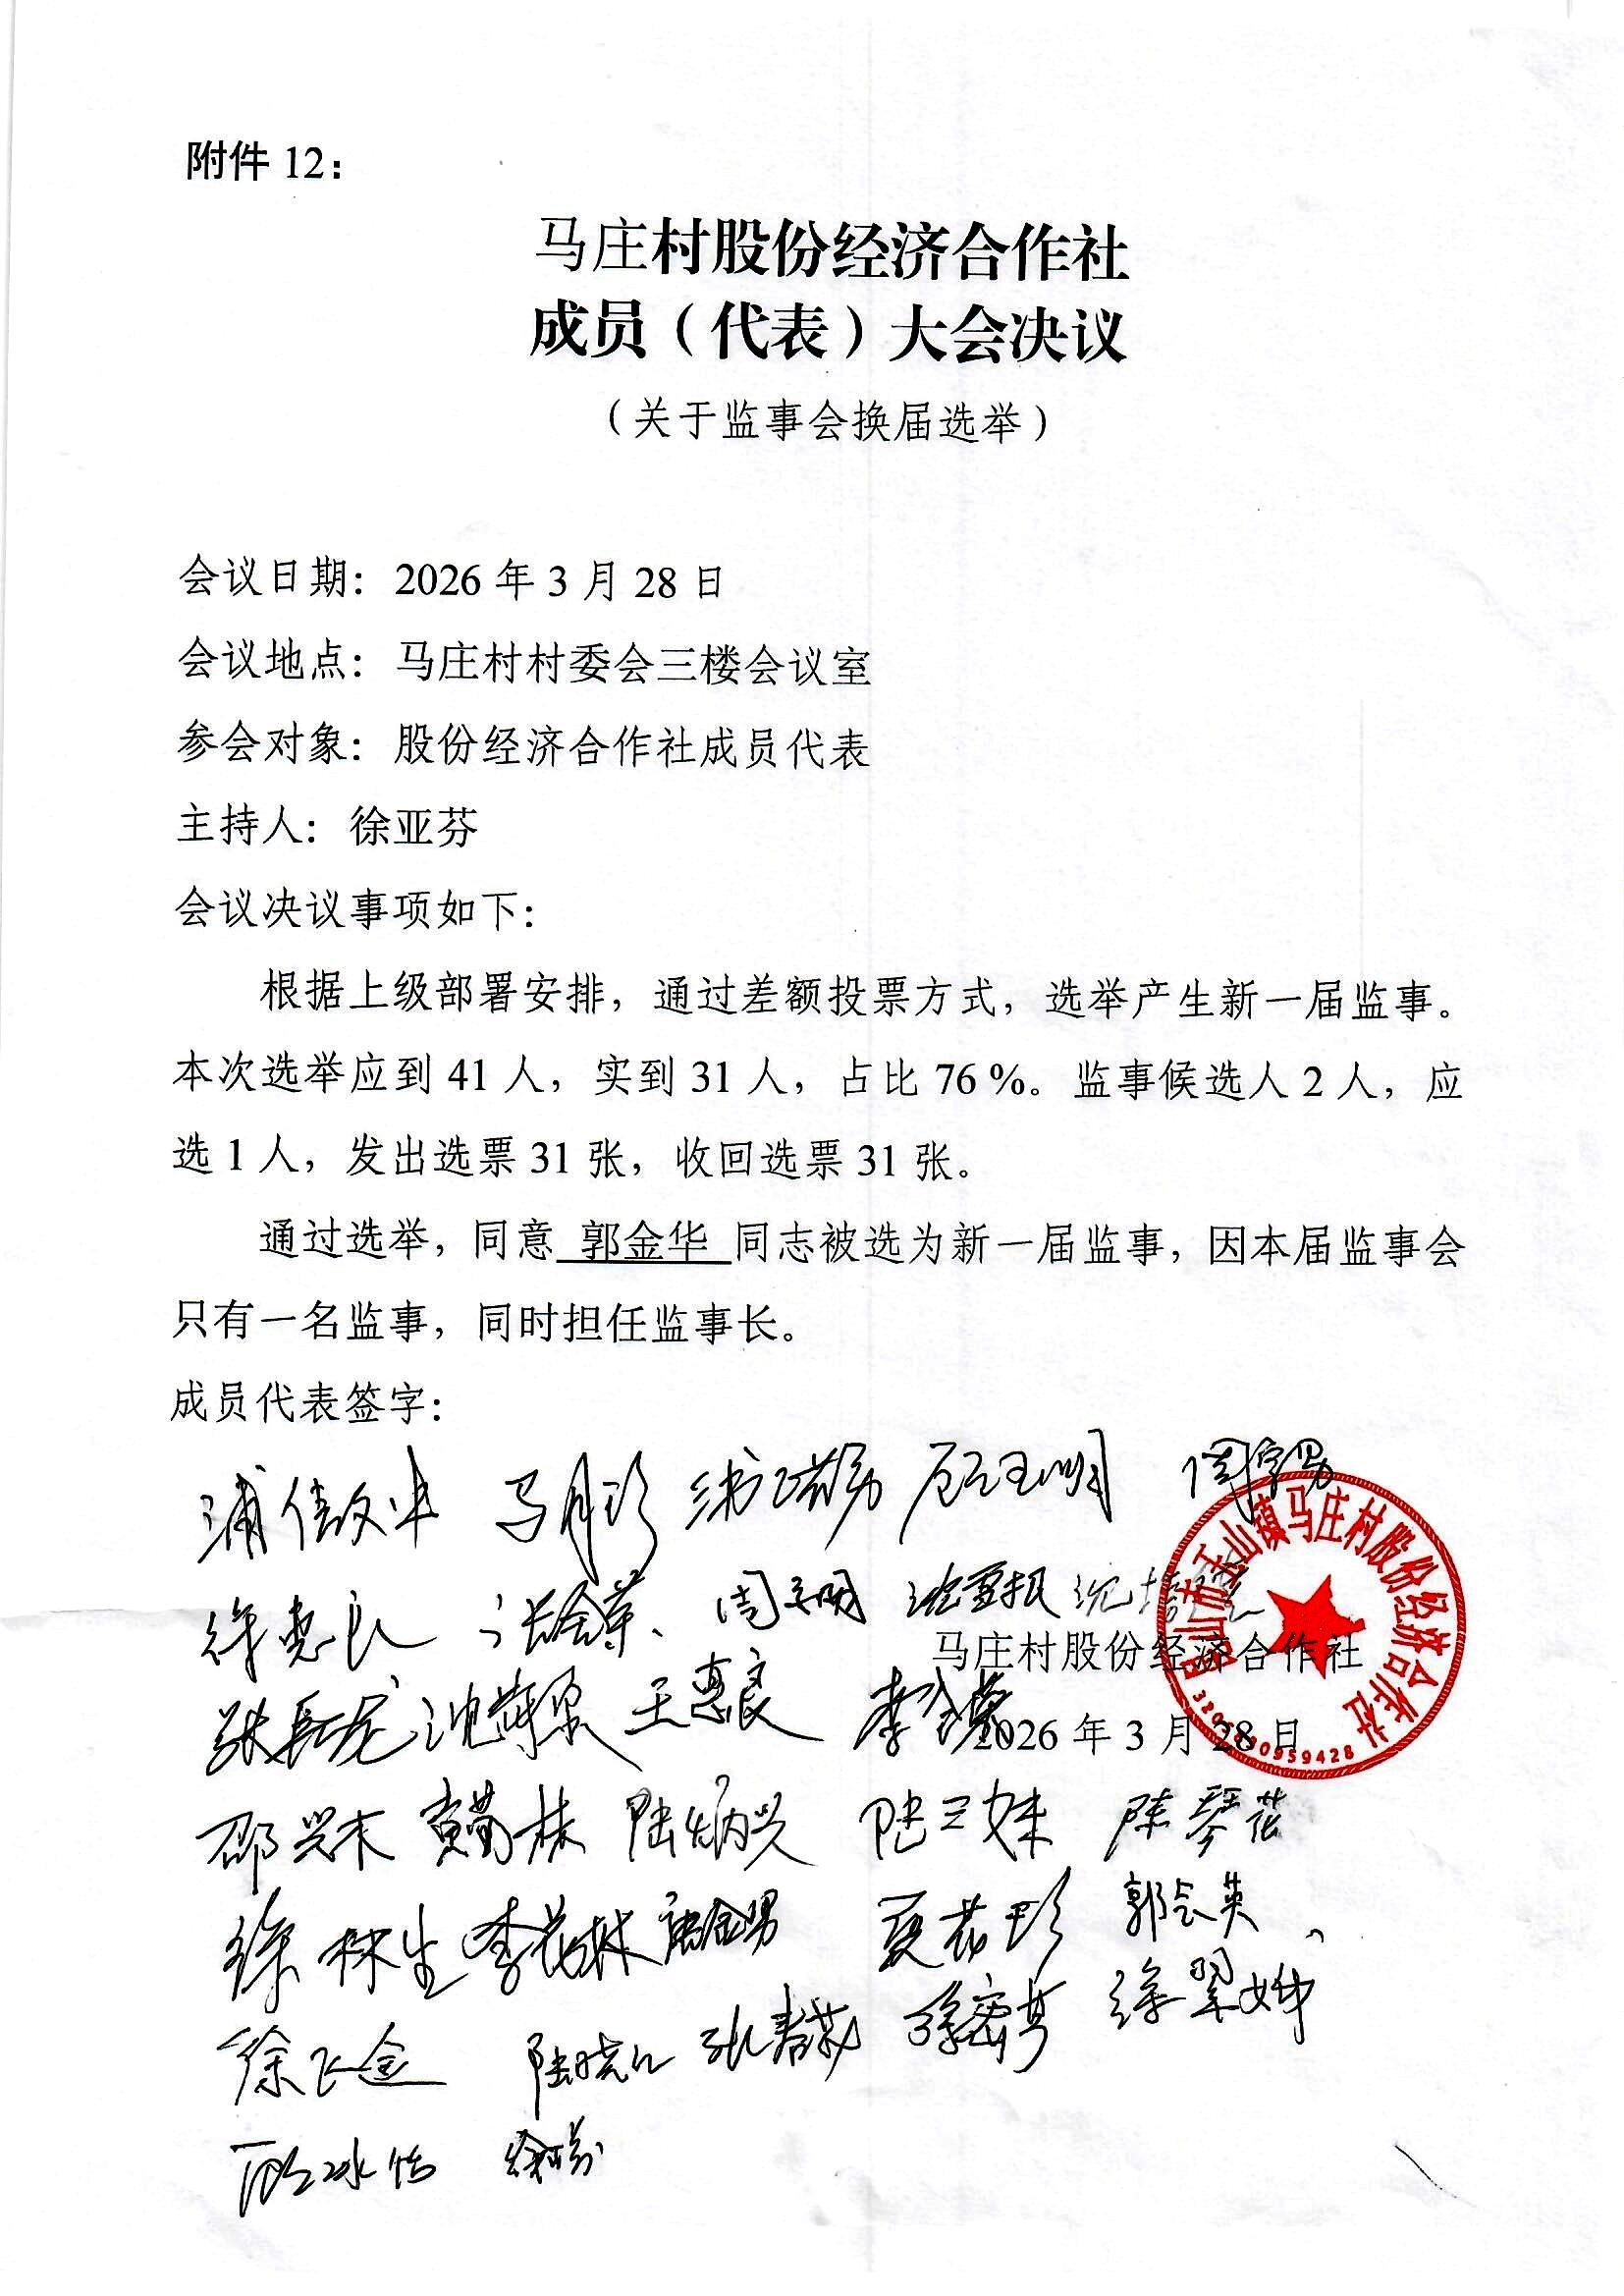 附件 12：
马庄村股份经济合作社
成员（代表）大会决议
（关于监事会换届选举）
会议日期：2026 年 3 月 28 日
会议地点：马庄村村委会三楼会议室
参会对象：股份经济合作社成员代表
主持人：徐亚芬
会议决议事项如下：
根据上级部署安排，通过差额投票方式，选举产生新一届监事。
本次选举应到 41 人，实到 31 人，占比 76 %。监事候选人 2 人，应
选 1 人，发出选票 31 张，收回选票 31 张。
通过选举，同意 郭金华 同志被选为新一届监事，因本届监事会
只有一名监事，同时担任监事长。
成员代表签字：
马月珍 顾玉明
徐惠良
马庄村股份经济合作社
王惠良
2026 年 3 月 28 日
邵兴木 黄菊林 陆炳兴 陆三妹 陈琴花
徐林生 李苗林 夏花珍
徐飞金 陆晓仁 徐翠妹
顾冰怡 徐亚芬
山市玉山镇马庄村股份经济合作社